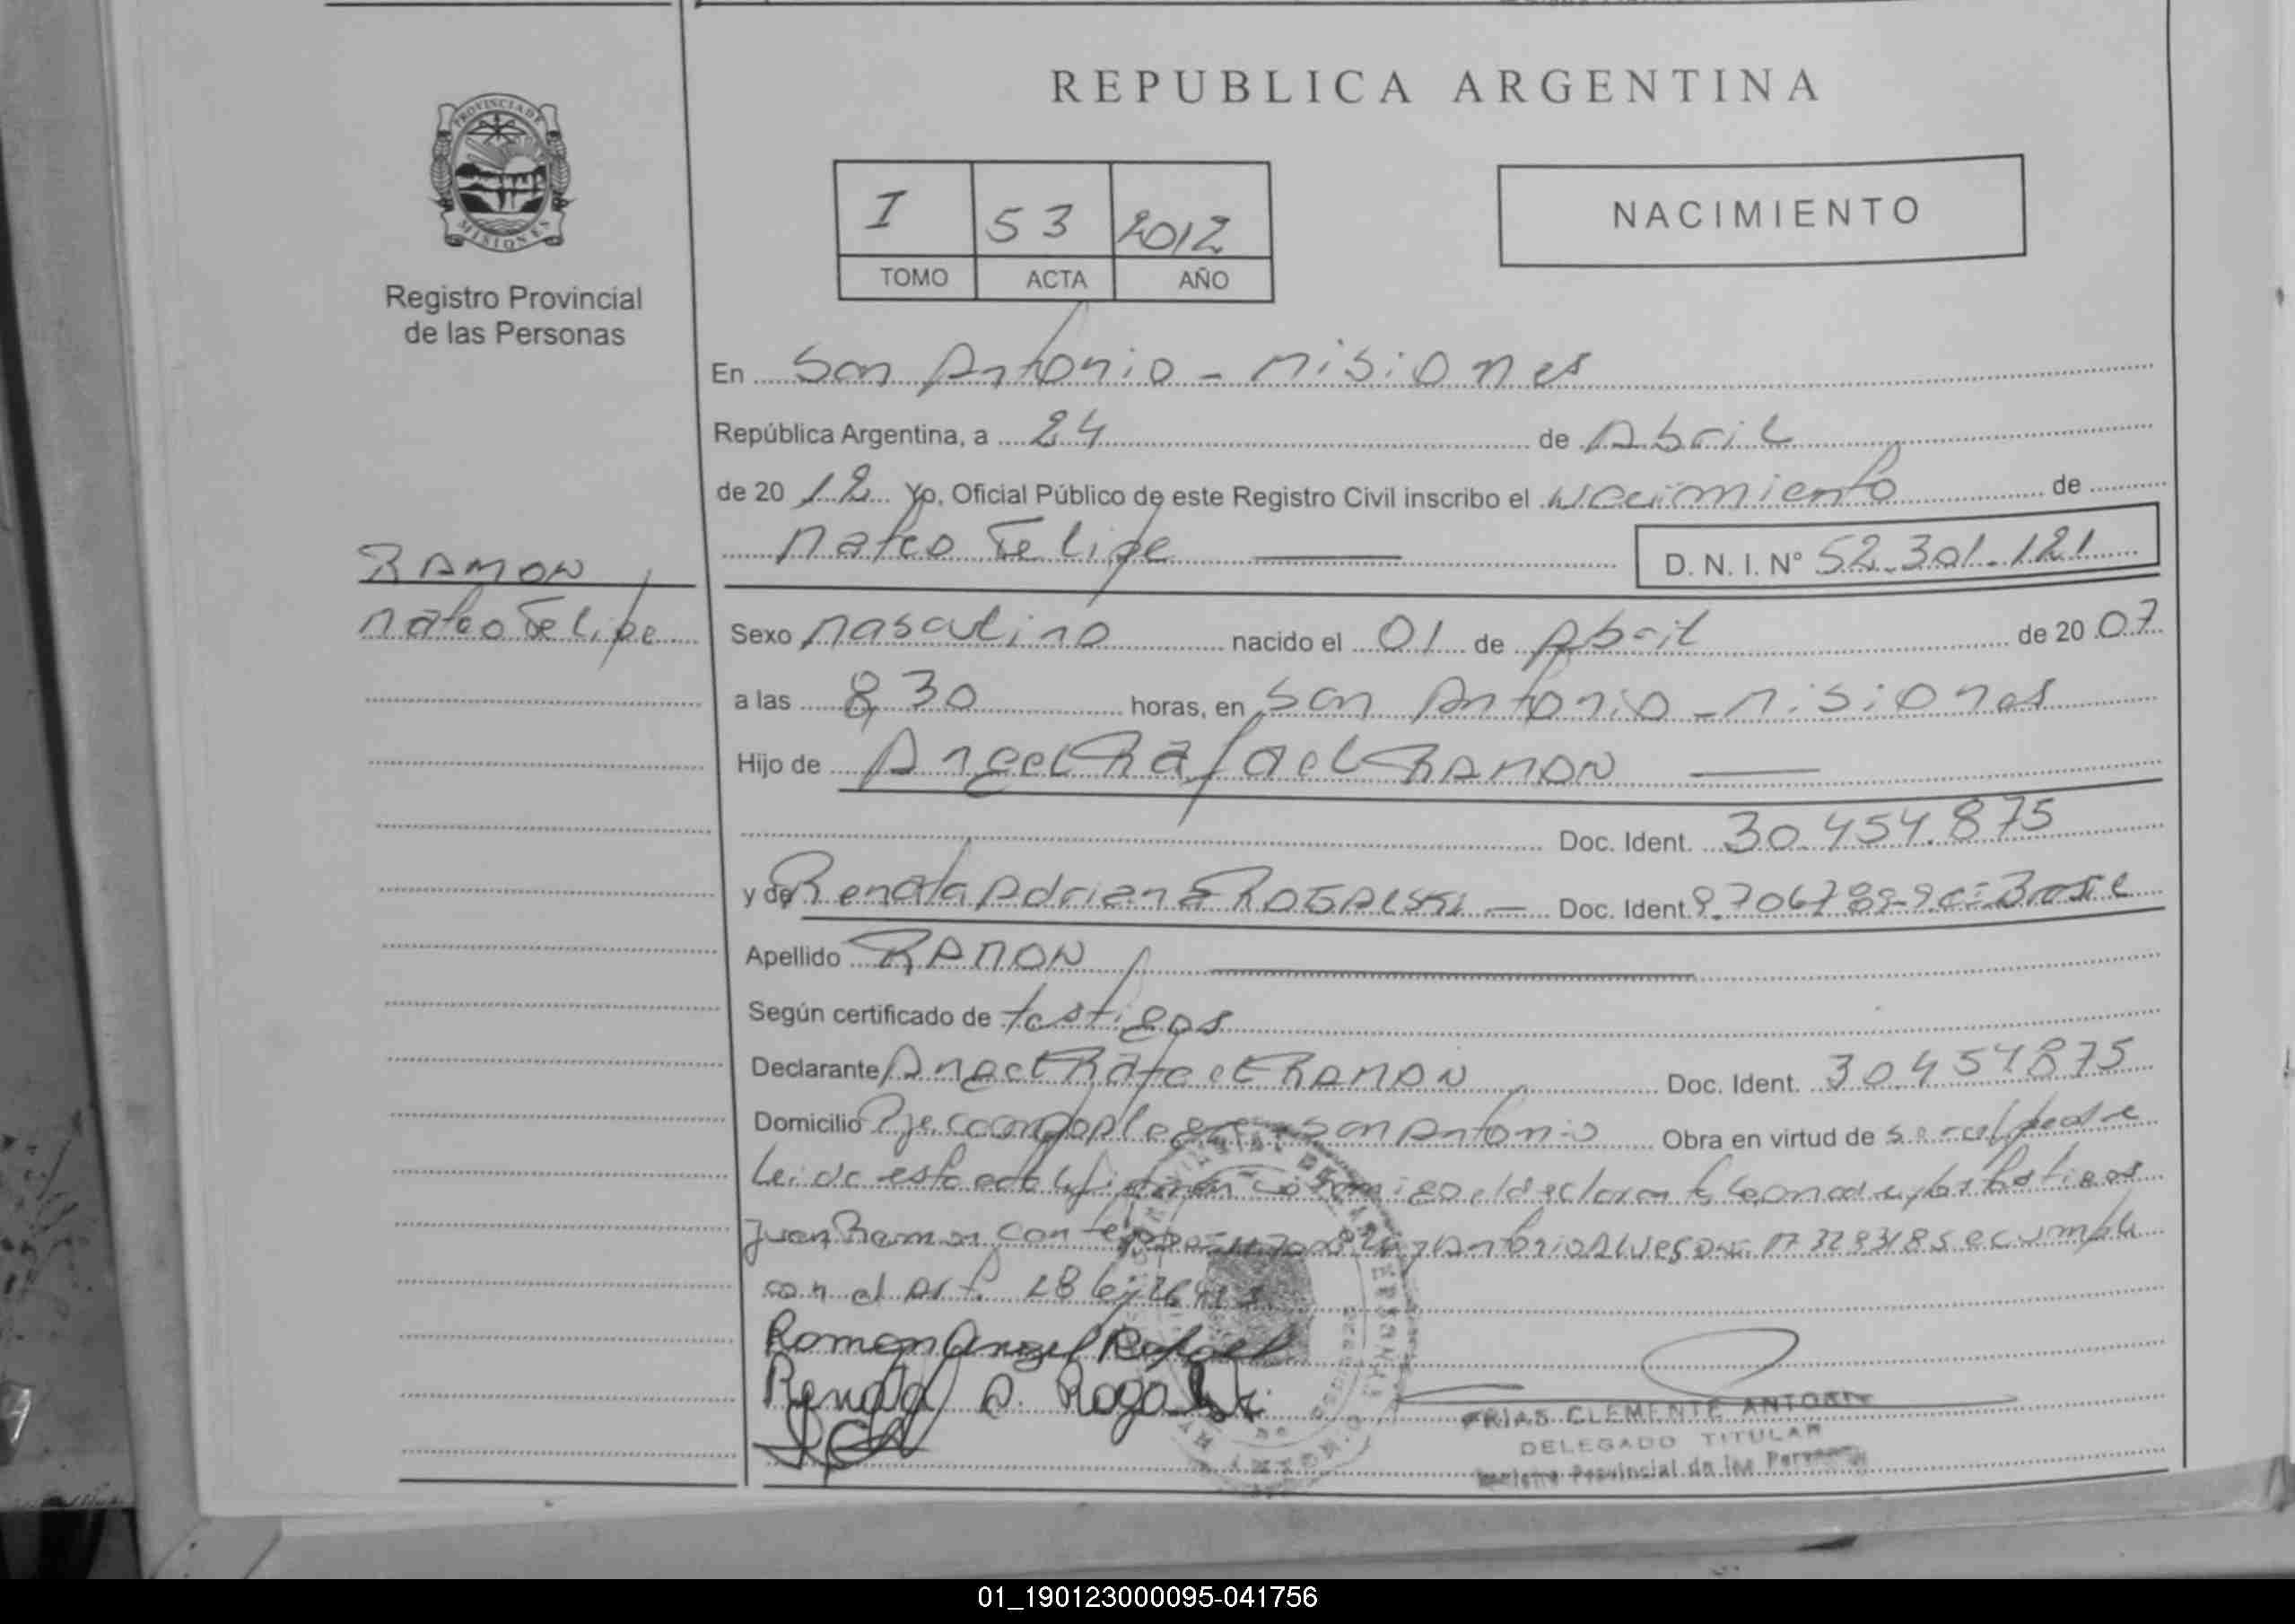 REPUBLICA ARGENTINA
PROVINCIA DE
MISIONES
Registro Provincial
de las Personas
I 53 2012
TOMO ACTA AÑO
NACIMIENTO
En San Antonio - Misiones
República Argentina, a 24 de Abril
de 20 12 Yo, Oficial Público de este Registro Civil inscribo el Nacimiento de
Mateo Felipe D. N. I. N° 52.301.121
RAMON
Mateo Felipe
Sexo Masculino nacido el 01 de Abril de 20 07
a las 8,30 horas, en San Antonio - Misiones
Hijo de Angel Rafael RAMON
Doc. Ident. 30.454.875
y de Renata Adriana ROGALSKI Doc. Ident.
Apellido RAMON
Según certificado de testigos
Declarante Angel Rafael RAMON Doc. Ident. 30.454875
Domicilio Pje San Antonio Obra en virtud de ser el padre
Leida esta acta la firman conmigo el declarante la madre y los testigos
Juan Ramon Antonio Alves DNI 17328318 se cumple
con el Art. 28
Ramon Angel Rafael
Renata A. Rogalski
FRIAS CLEMENTE ANTONIO
DELEGADO TITULAR
Registro Provincial de las Personas
01_190123000095-041756